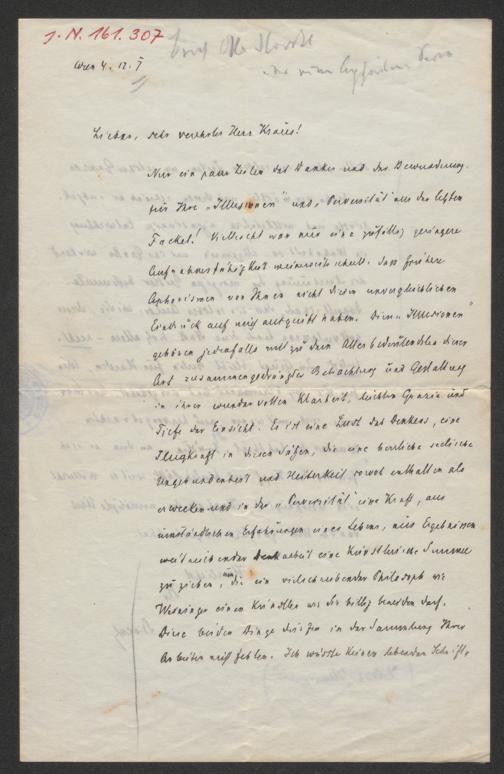 J.N. 161.307
Wien 4. 12. 7
Liebster, sehr verehrter Herr Kraus!
Nur ein paar Zeilen des Dankes und der Bewunderung
für Ihre „Illusionen" und „Perversität" aus der letzten
Fackel! Vielleicht war nur eine zufällig geringere
Aufnahmsfähigkeit meinerseits schuld, dass frühere
Aphorismen von Ihnen nicht diesen unvergleichlichen
Eindruck auf mich ausgeübt haben. Diese „Illusionen"
gehören jedenfalls mit zu dem Allerbedeutendsten dieser
Art zusammengedrängter Betrachtung und Gestaltung
in ihrer wundervollen Klarheit, leichten Grazie und
Tiefe der Einsicht. Es ist eine Lust des Denkens, eine
Flugkraft in diesen Sätzen, die eine herrliche seelische
Ungebundenheit und Heiterkeit sowol enthalten als
erwecken und in der „Perversität" eine Kraft, aus
umständlichen Erfahrungen eines Lebens, aus Ergebnissen
weitreichender Denkarbeit eine künstlerische Summe
zu ziehen, um die ein vielschreibender Philosoph wie
Weininger einen Künstler wie Sie billig beneiden darf.
Diese beiden Dinge dürfen in der Sammlung Ihrer
Arbeiten nicht fehlen. Ich wüsste keinen lebenden Schrift-